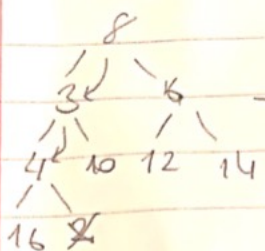 8
3
4 10 12 14
16